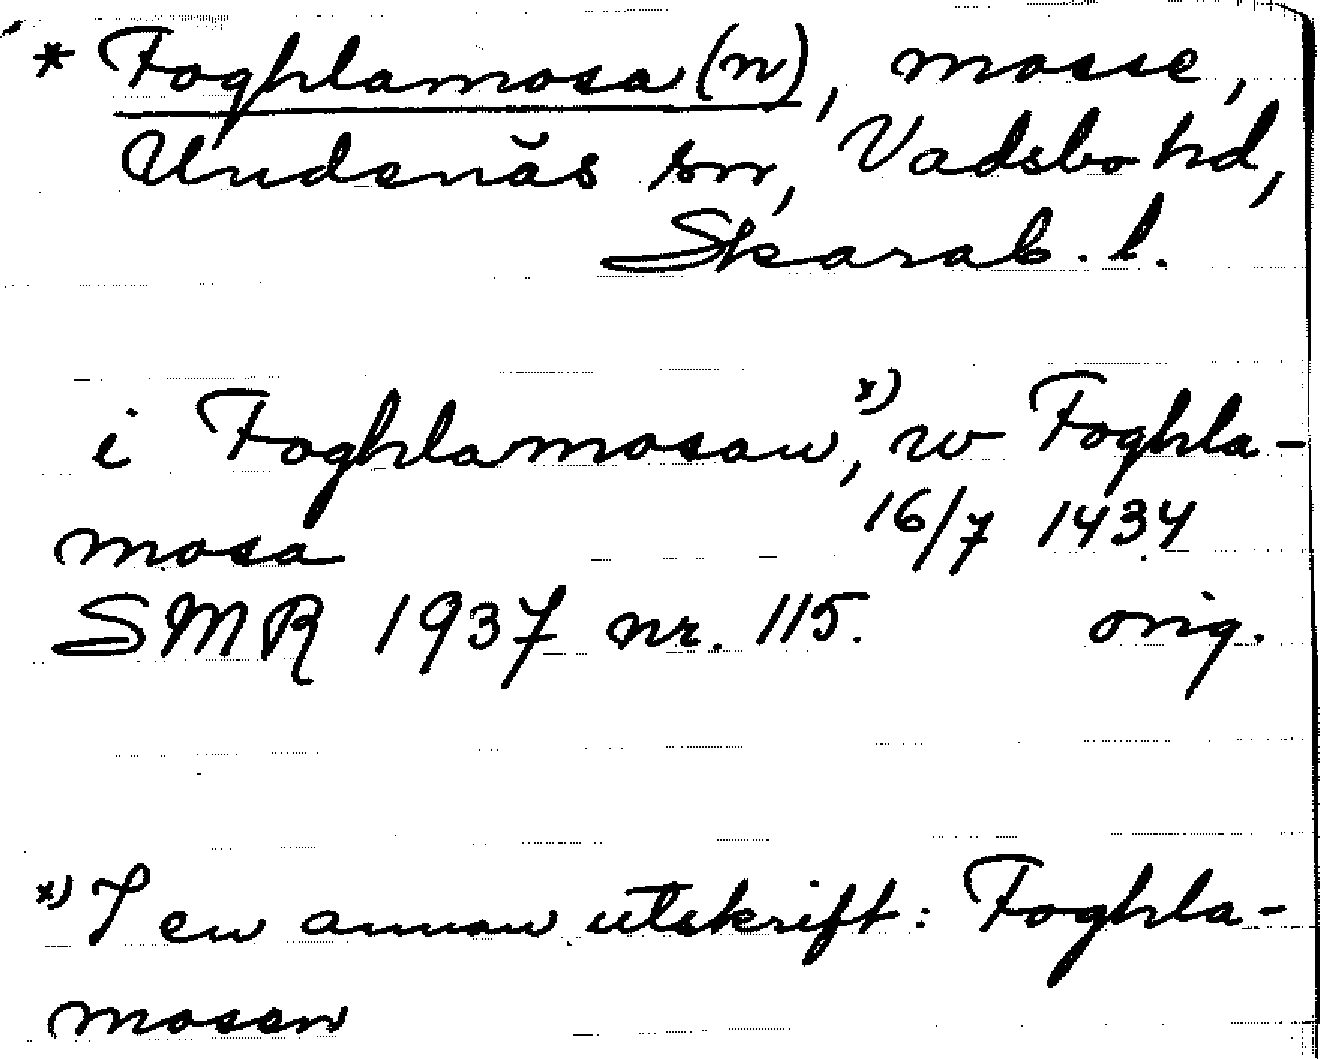 * Foghlamosa(n), mosse,
Undenäs sn, Vadsbo hd,
Skarab. l.
i Foghlamosan,ˣ⁾ w Foghla-
mosa 16/7 1434
SMR 1937 nr. 115. orig.
ˣ⁾ I en annan utskrift: Foghla-
mosan